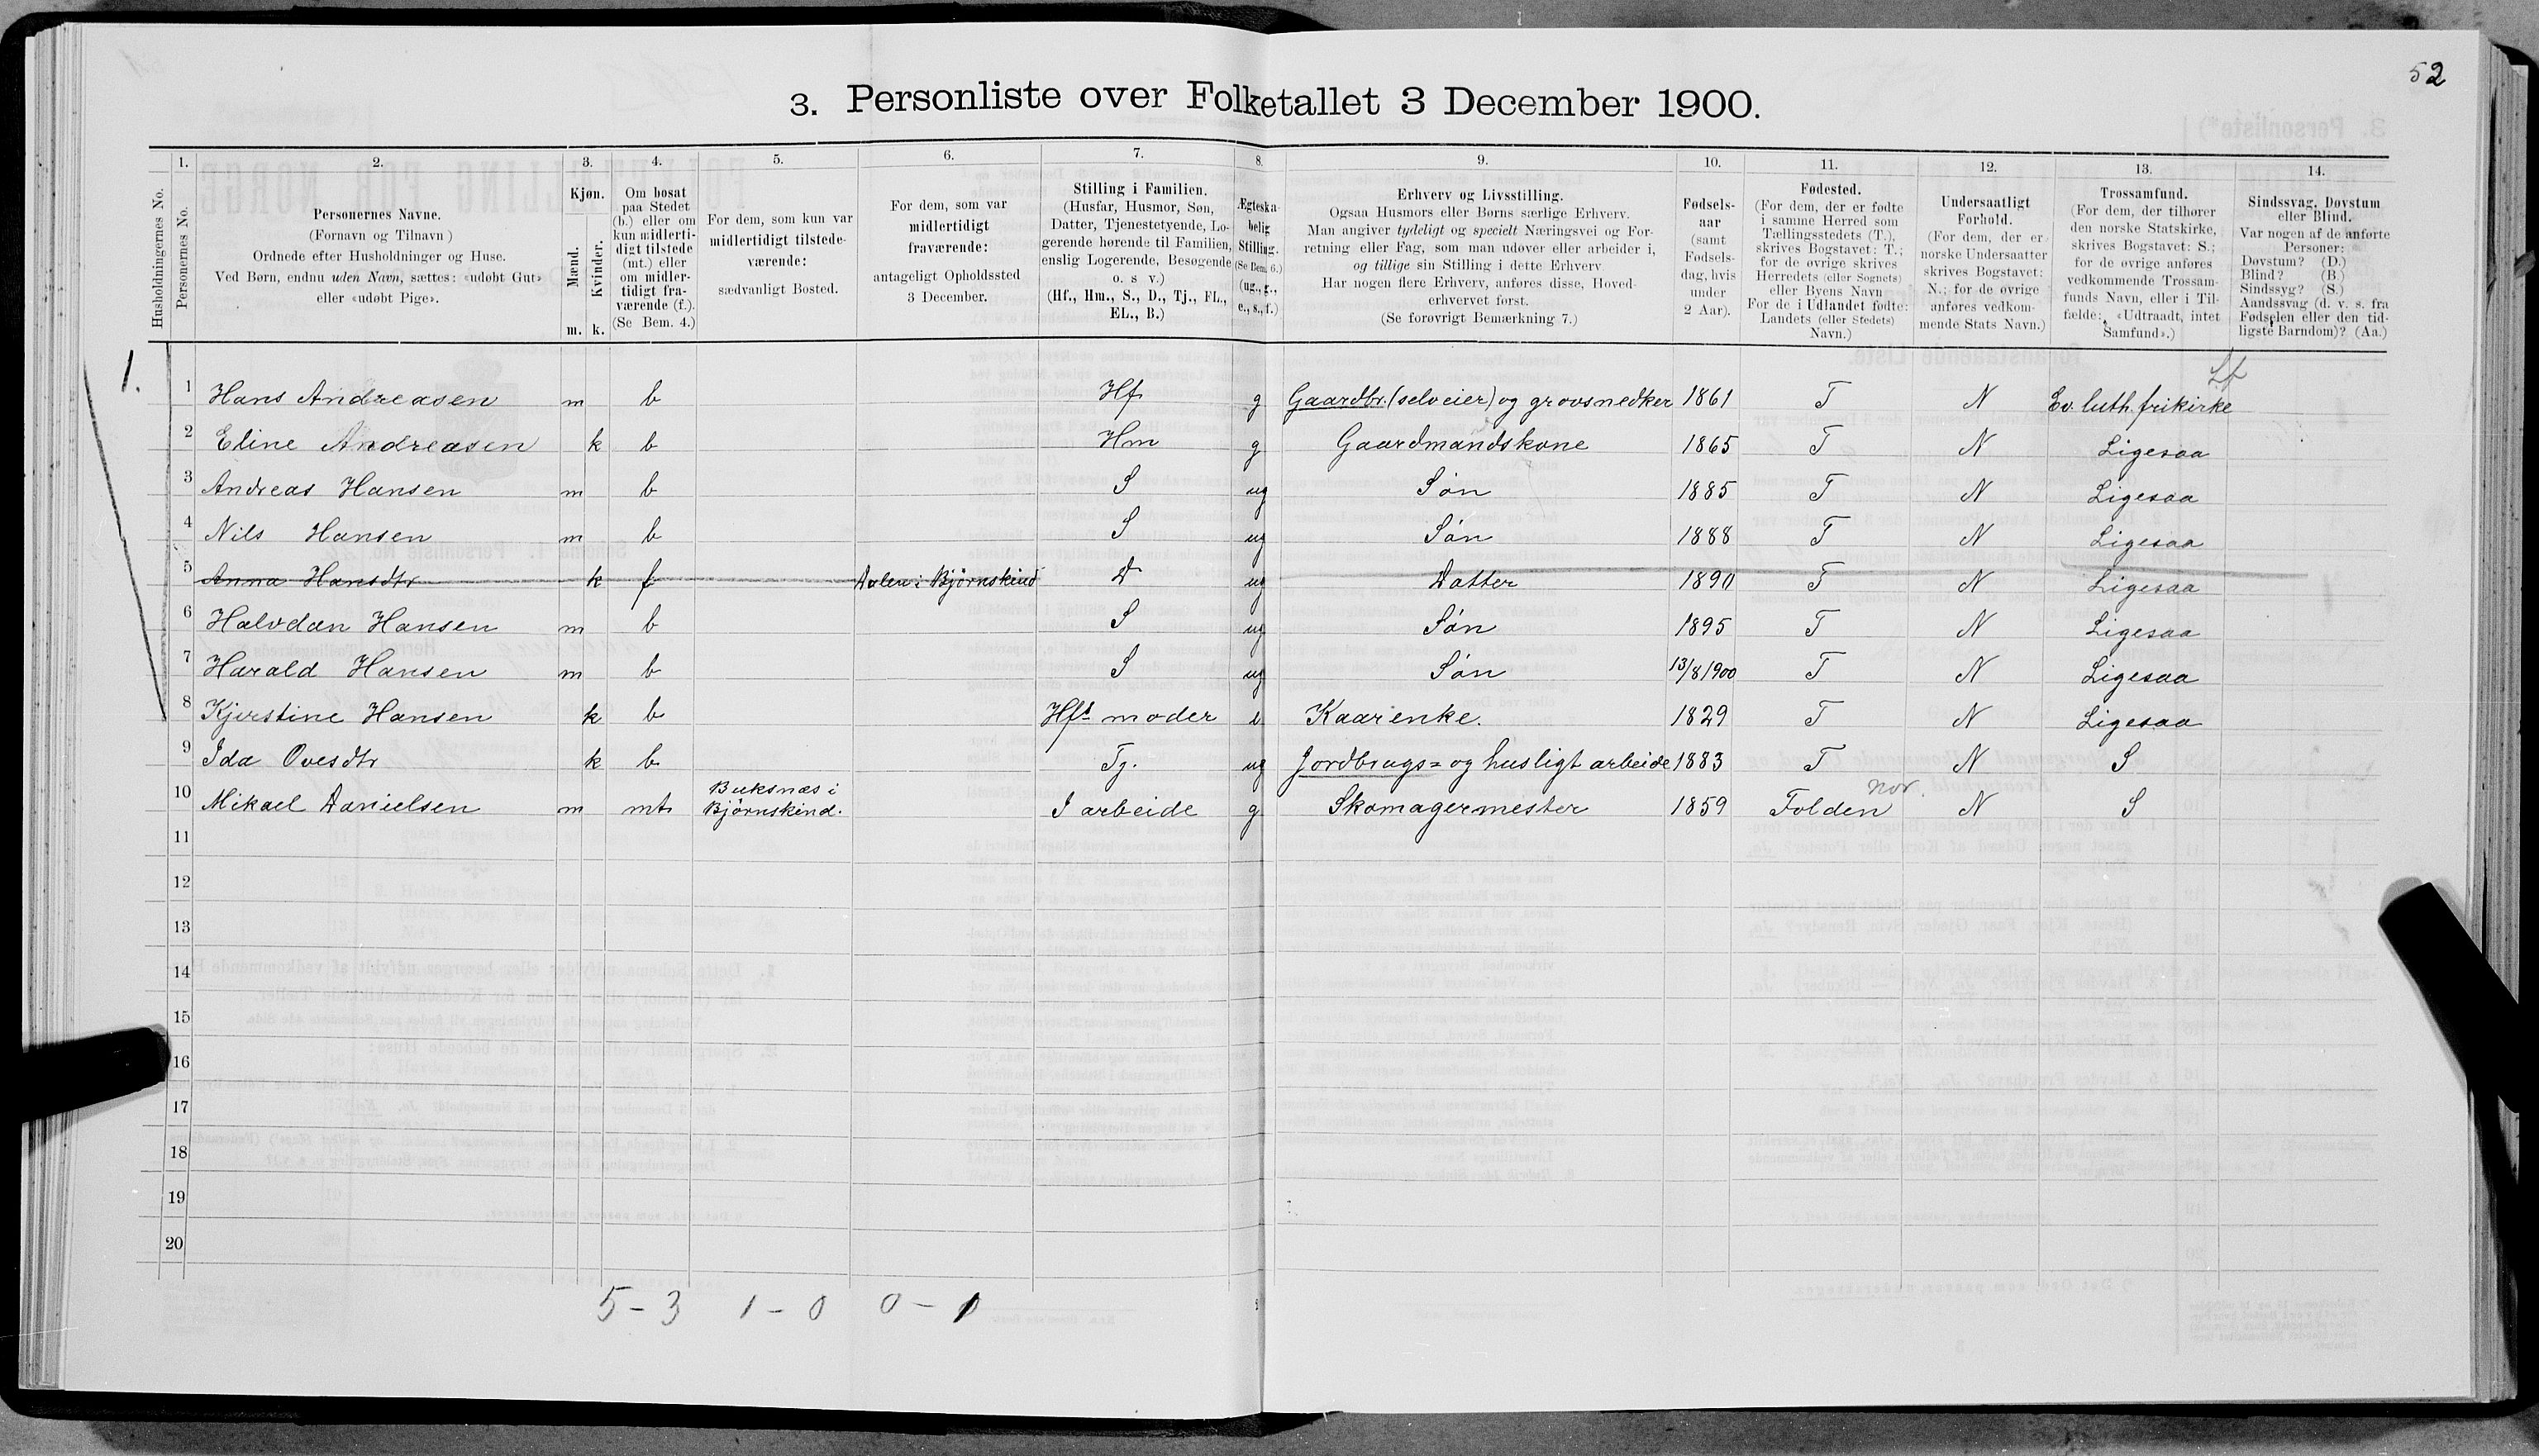 52
3. Personliste over Folketallet 3 December 1900.
Husholdningernes No.
1.
Personernes No.
2.
Personernes Navne.
(Fornavn og Tilnavn)
Ordnede efter Husholdninger og Huse.
Ved Børn, endnu uden Navn, sættes: «udøbt Gut»
eller «udøbt Pige».
3.
Kjøn.
Mænd.
Kvinder.
m. k.
4.
Om bosat
paa Stedet
(b.) eller om
kun midlerti-
digt tilstede
(mt.) eller
om midler-
tidigt fra-
værende (f.)
(Se Bem. 4.)
5.
For dem, som kun var
midlertidigt tilstede-
værende:
sædvanligt Bosted.
6.
For dem, som var
midlertidigt
fraværende:
antageligt Opholdssted
3 December.
7.
Stilling i Familien.
(Husfar, Husmor, Søn,
Datter, Tjenestetyende, Lo-
gerende hørende til Familien,
enslig Logerende, Besøgende
o. s v.)
(Hf., Hm., S., D., Tj., FL.,
EL., B.)
8.
Ægteska-
belig
Stilling.
(Se Bem. 6.)
(ug., g.,
e., s., f.)
9.
Erhverv og Livsstilling.
Ogsaa Husmors eller Børns særlige Erhverv.
Man angiver tydeligt og specielt Næringsvei og For-
retning eller Fag, som man udøver eller arbeider i,
og tillige sin Stilling i dette Erhverv
Har nogen flere Erhverv, anføres disse, Hoved-
erhvervet først.
(Se forøvrigt Bemærkning 7.)
10.
Fødsels-
aar
(samt
Fødsels-
dag, hvis
under
2 Aar).
11.
Fødested.
(For dem, der er fødte
i samme Herred som
Tællingsstedets (T.),
skrives Bogstavet: T.;
for de øvrige skrives
Herredets (eller Sognets)
eller Byens Navn
For de i Udlandet fødte:
Landets (eller Stedets)
Navn.)
12.
Undersaatligt
Forhold.
(For dem, der er
norske Undersaatter
skrives Bogstavet:
N.; for de øvrige
anføres vedkom-
mende Stats Navn.)
13.
Trossamfund.
(For dem, der tilhører
den norske Statskirke,
skrives Bogstavet: S.;
for de øvrige anføres
vedkommende Trossam-
funds Navn, eller i Til-
fælde: «Udtraadt, intet
Samfund».)
14.
Sindssvag, Døvstum
eller Blind.
Var nogen af de anførte
Personer:
Døvstum? (D.)
Blind? (B.)
Sindssyg? (S.)
Aandssvag (d. v. s. fra
Fødselen eller den tid-
ligste Barndom)? (Aa.)
Lf
1. 1 Hans Andreasen m b Hf. g Gaardbr. (selveier) og grovsnedker 1861 T N Ev. luth. frikirke
2 Eline Andreasen k b Hm g Gaardmandskone 1865 T N Ligesaa
3 Andreas Hansen m b S ug Søn 1885 T N Ligesaa
4 Nils Hansen m b S ug Søn 1888 T N Ligesaa
5 Anna Hansdtr k f i Bjørnskind D ug Datter 1890 T N Ligesaa
6 Halvdan Hansen m b S ug Søn 1895 T N Ligesaa
7 Harald Hansen m b S ug Søn 13/8 1900 T N Ligesaa
8 Kjerstine Hansen k b Hfs moder e Kaarenke. 1829 T N Ligesaa
9 Ida Ovesdtr k b Tj. ug Jordbrugs= og husligt arbeide 1883 T N S
Buksnæs i
nor.
10 Mikael Danielsen m mt Bjørnskind. I arbeide g Skomagermester 1859 Folden N S
11
12
13
14
15
16
17
18
19
20
5-3 1-0 0-1